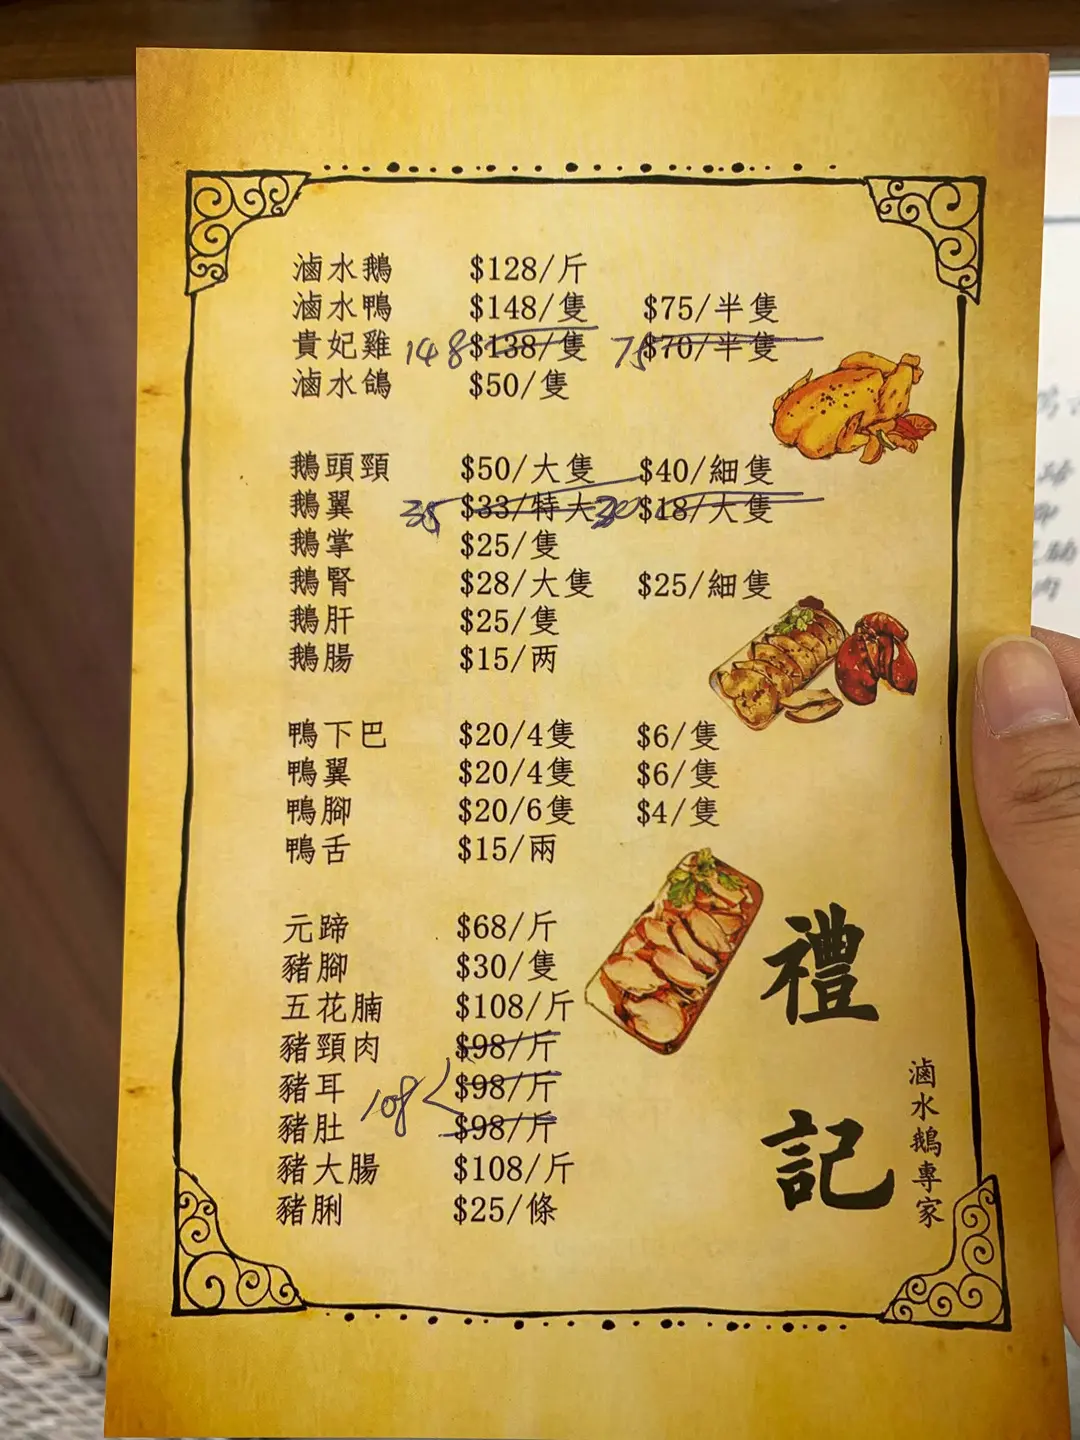 滷水鵝 $128/斤
滷水鴨 $148/隻 $75/半隻
貴妃雞 148 $138/隻 75 $70/半隻
滷水鴿 $50/隻
鵝頭頸 $50/大隻 $40/細隻
鵝翼 35 $33/特大 30 $18/大隻
鵝掌 $25/隻
鵝腎 $28/大隻 $25/細隻
鵝肝 $25/隻
鵝腸 $15/两
鴨下巴 $20/4隻 $6/隻
鴨翼 $20/4隻 $6/隻
鴨腳 $20/6隻 $4/隻
鴨舌 $15/兩
元蹄 $68/斤
豬腳 $30/隻
五花腩 $108/斤
豬頸肉 $98/斤
豬耳 108 $98/斤
豬肚 $98/斤
豬大腸 $108/斤
豬脷 $25/條
禮記
滷水鵝專家